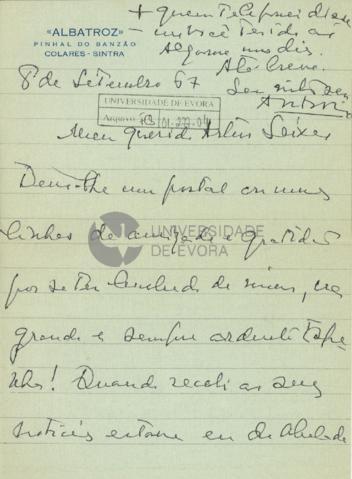 «ALBATROZ»
PINHAL DO BANZÃO
COLARES - SINTRA
+ quem telefonei disse
me você ter ido ao
Algarve uns dias.
Até breve.
Seu muito seu
António
8 de Setembro 67
UNIVERSIDADE DE EVORA
Arquivo
Meu querido Artur Seixas
Deu-lhe um postal ou umas
linhas de amizade e gratidão
por se ter lembrado de mim, na
grande e sempre ardente
Quando recebi as suas
notícias estava eu de abalada
UNIVERSIDADE
DE ÉVORA